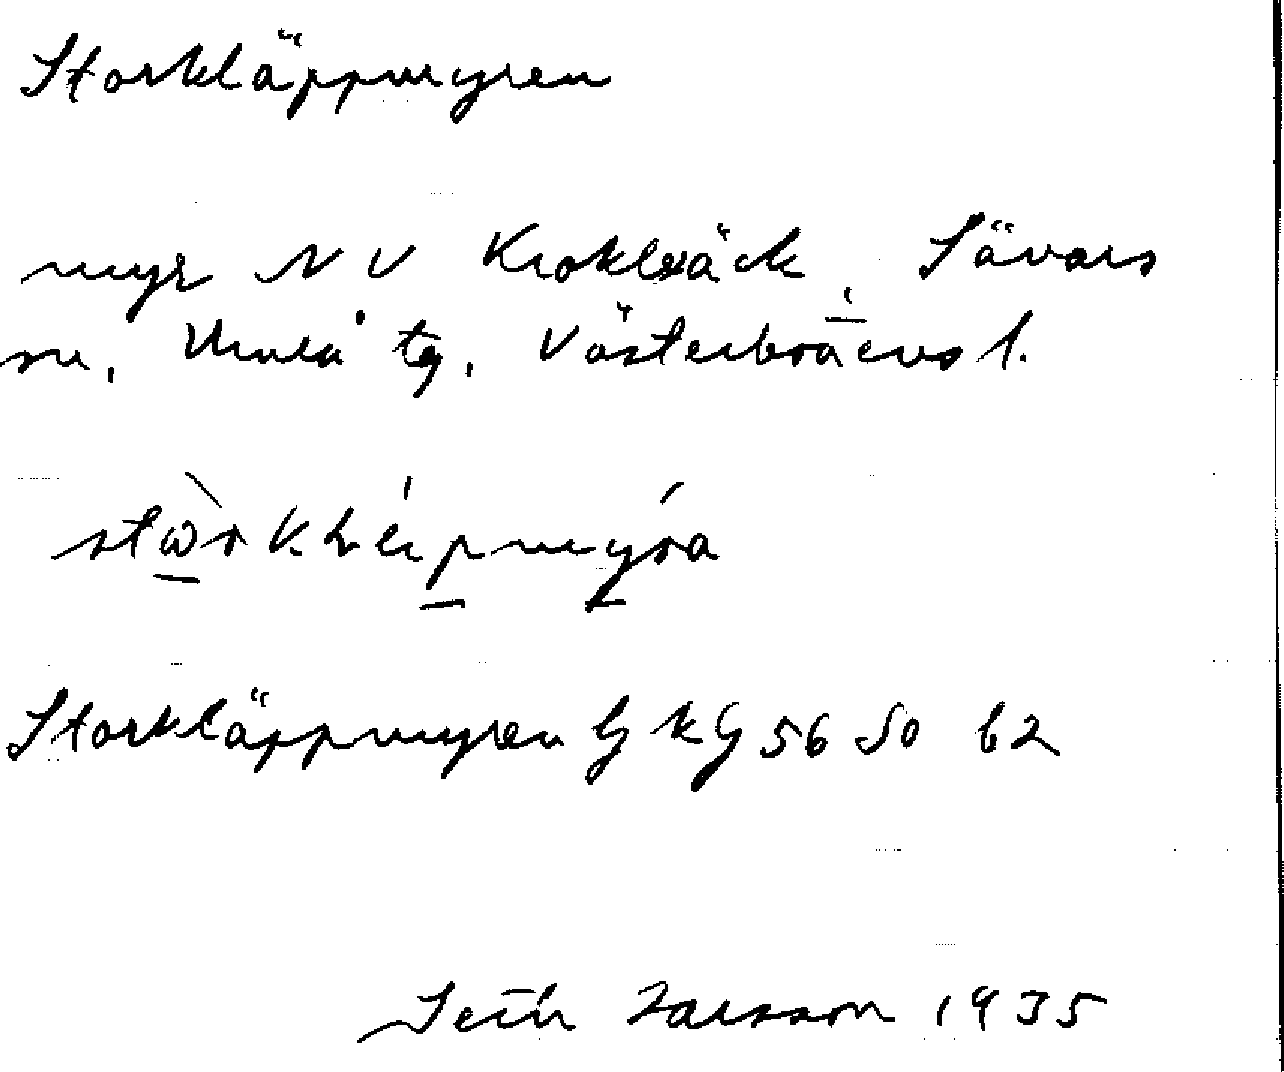 Storkläppmyren
myr NV Krokbäck, Sävars
sn, Umeå tg, Västerbottens l.
Storkläppmyren GkG 56 50 62
Seth Larsson 1935